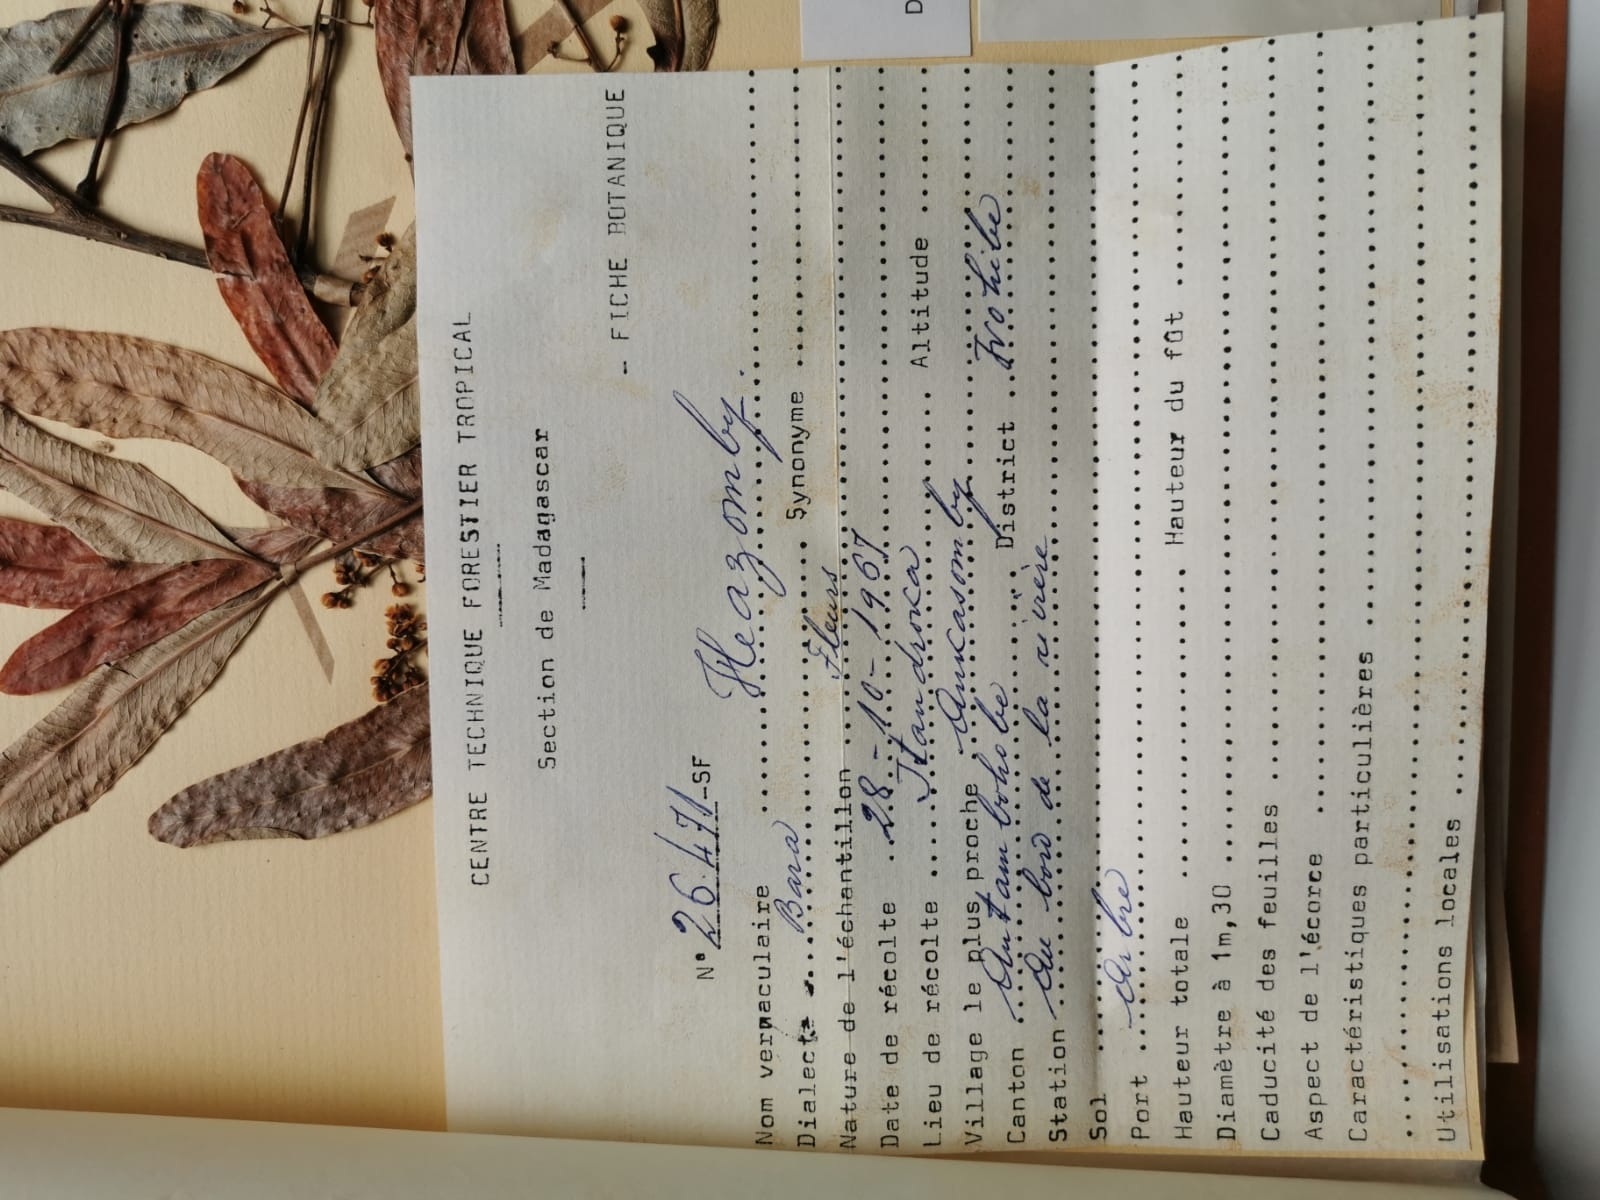 CENTRE TECHNIQUE FORESTIER TROPICAL
Section de Madagascar
- FICHE BOTANIQUE
N° 26.471-SF
Nom vernaculaire Heazomby.
Dialecte Bara Synonyme
Nature de l'échantillon Fleurs
Date de récolte 28-10-1967
Lieu de récolte Altitude
Village le plus proche Ankasomby
Canton Antambohobe District Ivohibe
Station Au bord de la rivière
Sol
Port Arbre
Hauteur totale Hauteur du fût
Diamètre à 1m,30
Caducité des feuilles
Aspect de l'écorce
Caractéristiques particulières
Utilisations locales